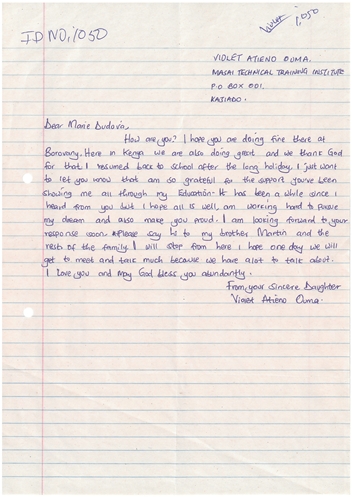 Violet
1,050
ID NO; 1050
VIOLET ATIENO OUMA.
MASAI TECHNICAL TRAINING INSTITUTE
P.O BOX 001.
KAJIADO.
Dear Marie Dudova,
How are you? I hope you are doing fine there at
Borovany. Here in Kenya we are also doing great and we thank God
for that I resumed back to school after the long holiday. I just want
to let you know that am so grateful for the support you've been
showing me all through my Education. It has been a while since I
heard from you but I hope all is well, am working hard to pursue
my dream and also make you proud. I am looking forward to your
response soon. Please say hi to my brother Martin and the
rest of the family. I will stop from here I hope one day we will
get to meet and talk much because we have alot to talk about.
I Love you and May God bless you abundantly.
From your Sincere Daughter
Violet Atieno Ouma.